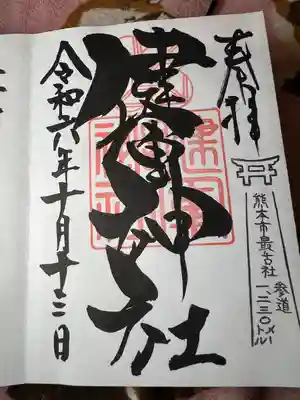 奉拝
参道
熊本市最古社 一、二三〇メートル
健軍神社
令和六年十月十三日